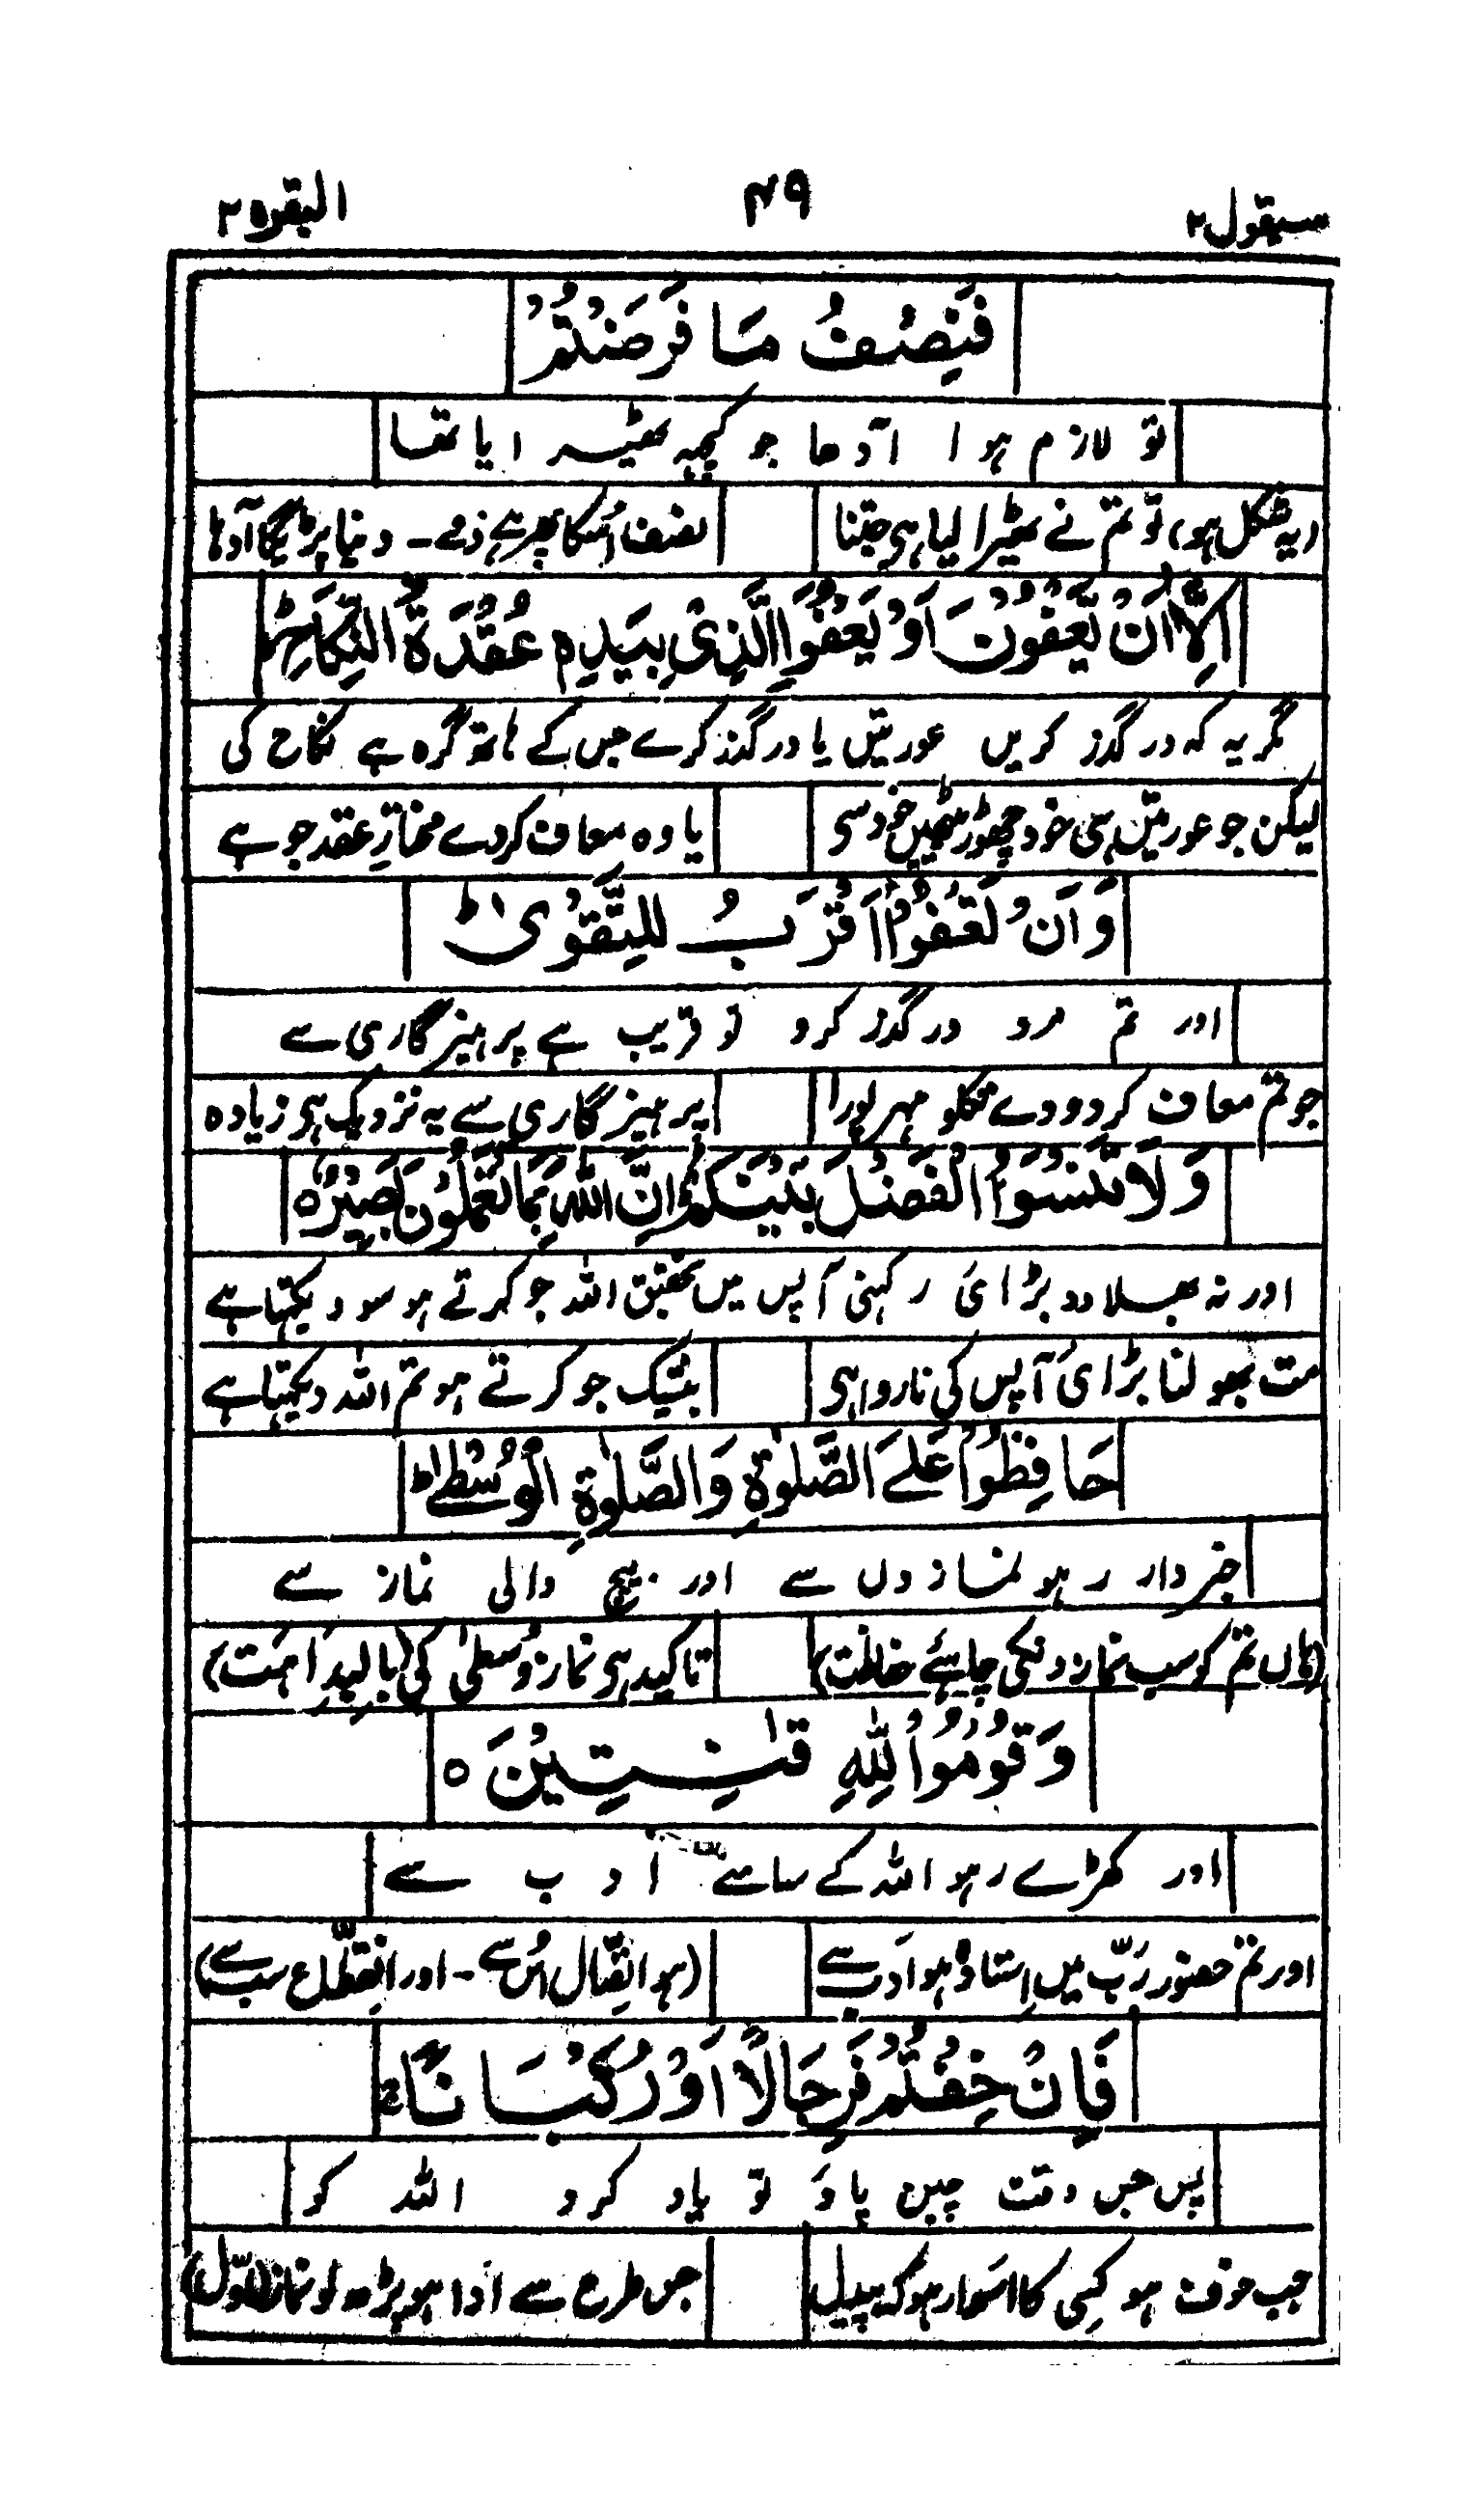 سیقول۲ ۴۹ البقرہ۲
فَنِصْفُ مَا فَرَضْتُمْ
تو لازم ہوا آدھا جو کچھ ٹھیرایا تھا
(یہ شکل ہو) تو تم نے ٹھیرا لیا ہی جتنا نصف اُسکا پھر ہے ذمے۔ دینا پڑیگا آدھا
اِلَّا اَنْ يَّعْفُوْنَ اَوْ يَعْفُوَا الَّذِيْ بِيَدِهٖ عُقْدَةُ النِّكَاحِ ؕ
مگر یہ کہ در گذر کریں عورتیں یا در گذر کرے جس کے ہاتھ گرہ ہے نکاح کی
لیکن جو عورتیں ہی خود چھوڑ بیٹھیں خود سی یا وہ معاف کردے مختارِ عقد جو ہے
وَاَنْ تَعْفُوْۤا اَقْرَبُ لِلتَّقْوٰى ؕ
اور تم مرد درگذر کرو تو قریب ہے پرہیزگاری سے
جو تم معاف کردو دے مہر پورا پرہیزگاری سے یہ نزدیک ہی زیادہ
وَلَا تَنْسَوُا الْفَضْلَ بَيْنَكُمْ ؕ اِنَّ اللّٰهَ بِمَا تَعْمَلُوْنَ بَصِيْرٌ ۝
اور نہ بھلادو بڑائی رکھنی آپس میں تحقیق اللہ جو کرتے ہو سو دیکھتا ہے
مت بھولنا بڑائی آپس کی ناروا ہی بیشک جو کرتے ہو تم اللہ دیکھتا ہے
حَافِظُوْا عَلَى الصَّلٰوةِ وَالصَّلٰوةِ الْوُسْطٰى ؕ
خبردار رہو نمازوں سے اور بیچ والی نماز سے
(ہاں تم کو سب نمازوں کی چاہئے) تاکید ہی نمازِ وُسطیٰ کی
وَقُوْمُوْا لِلّٰهِ قٰنِتِيْنَ ۝
اور کھڑے رہو اللہ کے سامنے ادب سے
اور تم حضورِ رَبّ میں اِستادہ ہو ادب سے (ہو اِتّصال اُس سے۔ اور اِنقطاع سب سے)
فَاِنْ خِفْتُمْ فَرِجَالًا اَوْ رُكْبَانًا ۚ
پس جس وقت چین پاؤ تو یاد کرو اللہ کو
جب خوف ہو کسی کا اسوار ہو کہ پیدل جس طرح سے ادا ہو پڑھ لو نماز